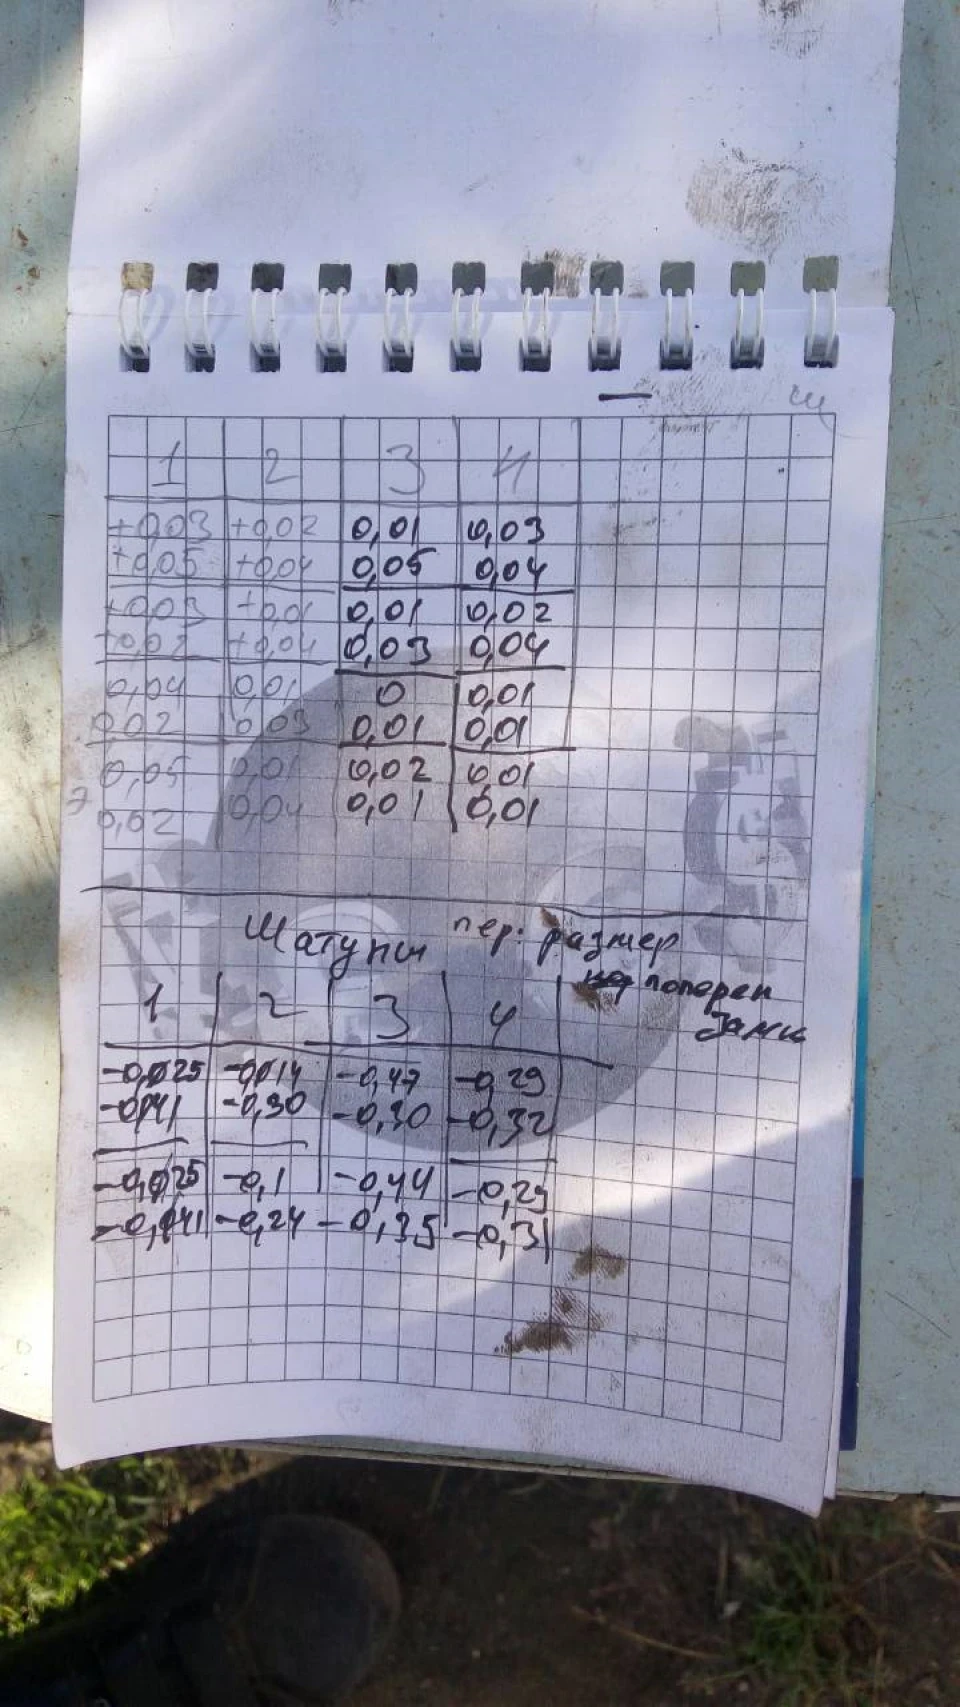 1 2 3 4
+0,03 +0,02 0,01 0,03
+0,05 +0,04 0,05 0,04
+0,03 +0,01 0,01 0,02
+0,02 +0,04 0,03 0,04
0,04 0,01 0 0,01
0,02 0,03 0,01 0,01
0,05 0,01 0,02 0,01
0,02 0,04 0,01 0,01
Шатуны пер: размер
поперек
замк
1 2 3 4
-0,025 -0,014 -0,47 -0,29
-0,041 -0,30 -0,30 -0,32
-0,025 -0,1 -0,44 -0,29
-0,041 -0,24 -0,35 -0,31